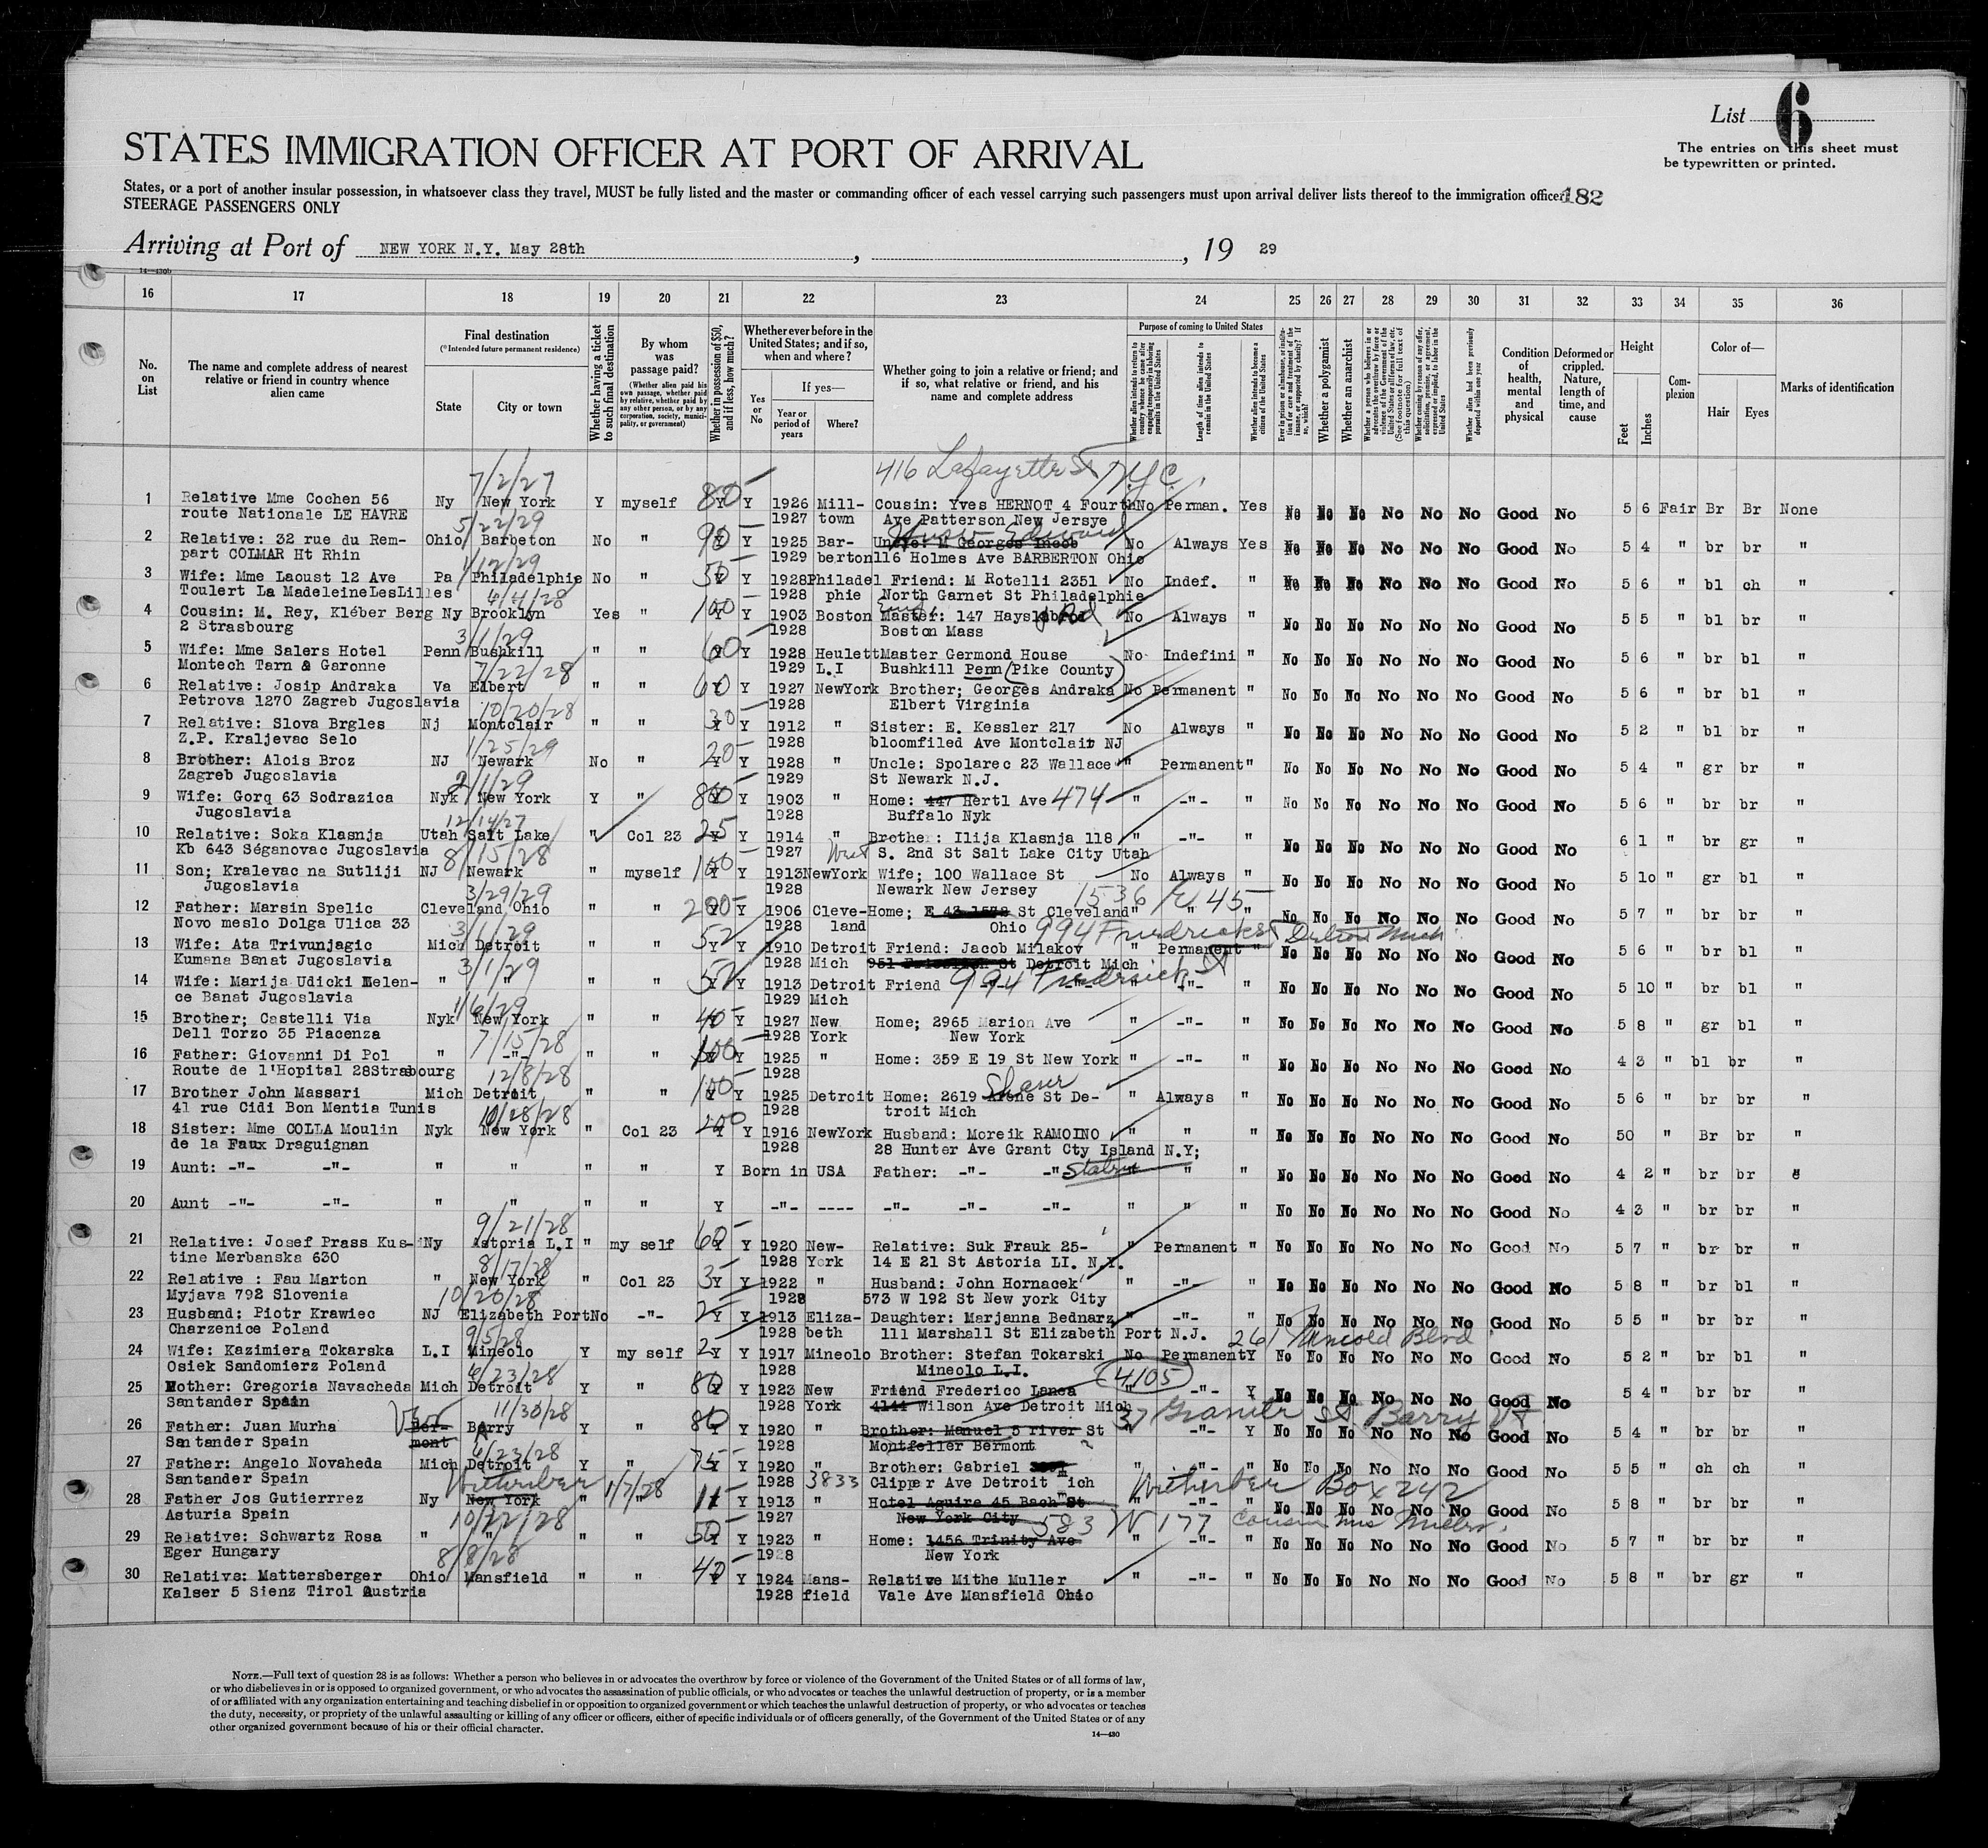 List 6
The entries on this sheet must
be typewritten or printed.
STATES IMMIGRATION OFFICER AT PORT OF ARRIVAL
States, or a port of another insular possession, in whatsoever class they travel, MUST be fully listed and the master or commanding officer of each vessel carrying such passengers must upon arrival deliver lists thereof to the immigration officer 182
STEERAGE PASSENGERS ONLY
Arriving at Port of NEW YORK N.Y. May 28th, 19 29
14—430b
16 17 18 19 20 21 22 23 24 25 26 27 28 29 30 31 32 33 34 35 36
No. on List
The name and complete address of nearest relative or friend in country whence alien came
Final destination
(*Intended future permanent residence)
State City or town
Whether having a ticket to such final destination
By whom was passage paid?
(Whether alien paid his own passage, whether paid by relative, whether paid by any other person, or by any corporation, society, municipality, or government)
Whether in possession of $50, and if less, how much?
Whether ever before in the United States; and if so, when and where?
Yes or No
If yes—
Year or period of years
Where?
Whether going to join a relative or friend; and if so, what relative or friend, and his name and complete address
Purpose of coming to United States
Whether alien intends to return to country whence he came after engaging temporarily in laboring pursuits in the United States
Length of time alien intends to remain in the United States
Whether alien intends to become a citizen of the United States
Ever in prison or almshouse, or institution for care and treatment of the insane, or supported by charity? If so, which?
Whether a polygamist
Whether an anarchist
Whether a person who believes in or advocates the overthrow by force or violence of the Government of the United States or all forms of law, etc. (See footnote for full text of this question)
Whether coming by reason of any offer, solicitation, promise, or agreement, expressed or implied, to labor in the United States
Whether alien had been previously deported within one year
Condition of health, mental and physical
Deformed or crippled. Nature, length of time, and cause
Height
Feet Inches
Complexion
Color of—
Hair Eyes
Marks of identification
7/2/27 416 Lafayette St N.Y.C.
1 Relative Mme Cochen 56 Ny New York Y myself 80 Y Y 1926 Mill- Cousin: Yves HERNOT 4 Fourth No Perman. Yes No No No No No No Good No 5 6 Fair Br Br None
route Nationale LE HAVRE 1927 town Ave Patterson New Jersye
5/22/29
2 Relative: 32 rue du Rem- Ohio Barbeton No " 90 Y Y 1925 Bar- No Always Yes No No No No No No Good No 5 4 " br br "
part COLMAR Ht Rhin 1929 berton 116 Holmes Ave BARBERTON Ohio
3 Wife: Mme Laoust 12 Ave Pa Philadelphie No " 50 Y Y 1928 Philadel Friend: M Rotelli 2351 No Indef. " No No No No No No Good No 5 6 " bl ch "
Toulert La MadeleineLesLilles 1928 phie North Garnet St Philadelphie
4/4/28
4 Cousin: M. Rey, Kléber Berg Ny Brooklyn Yes " 100 Y Y 1903 Boston Master: 147 Rd No Always " No No No No No No Good No 5 5 " bl br "
2 Strasbourg 1928 Boston Mass
3/1/29
5 Wife: Mme Salers Hotel Penn Bushkill " " 60 Y Y 1928 Heulett Master Germond House No Indefini " No No No No No No Good No 5 6 " br bl "
Montech Tarn & Garonne 1929 L.I Bushkill Penn (Pike County)
7/22/28
6 Relative: Josip Andraka Va Elbert " " 60 Y Y 1927 NewYork Brother; Georges Andraka No Permanent " No No No No No No Good No 5 6 " br bl "
Petrova 1270 Zagreb Jugoslavia 1928 Elbert Virginia
10/20/28
7 Relative: Slova Brgles Nj Montclair " " 30 Y Y 1912 " Sister: E. Kessler 217 No Always " No No No No No No Good No 5 2 " bl br "
Z.P. Kraljevac Selo 1928 bloomfiled Ave Montclair NJ
1/25/29
8 Brother: Alois Broz NJ Newark No " 20 Y Y 1928 " Uncle: Spolarec 23 Wallace " Permanent " No No No No No No Good No 5 4 " gr br "
Zagreb Jugoslavia 1929 St Newark N.J.
2/1/29
9 Wife: Gorq 63 Sodrazica Nyk New York Y " 80 Y Y 1903 " Home: 447 Hertl Ave 474 " -"- " No No No No No No Good No 5 6 " br br "
Jugoslavia 1928 Buffalo Nyk
12/14/27
10 Relative: Soka Klasnja Utah Salt Lake " Col 23 25 Y Y 1914 " Brother: Ilija Klasnja 118 " -"- " No No No No No No Good No 6 1 " br gr "
Kb 643 Séganovac Jugoslavia 1927 West S. 2nd St Salt Lake City Utah
8/15/28
11 Son; Kralevac na Sutliji NJ Newark " myself 100 Y Y 1913 NewYork Wife; 100 Wallace St No Always " No No No No No No Good No 5 10 " gr bl "
Jugoslavia 1928 Newark New Jersey
3/29/29 1536 E 45
12 Father: Marsin Spelic Cleveland Ohio " " 200 Y Y 1906 Cleve- Home; E 43 St Cleveland " " " No No No No No No Good No 5 7 " br br "
Novo meslo Dolga Ulica 33 1928 land Ohio
3/1/29 994 Fredricks St Detroit Mich
13 Wife: Ata Trivunjagic Mich Detroit " " 52 Y Y 1910 Detroit Friend: Jacob Milakov " Permanent " No No No No No No Good No 5 6 " br bl "
Kumana Banat Jugoslavia 1928 Mich 951 St Detroit Mich
3/1/29 994 Fredrick St
14 Wife: Marija Udicki Melen- " " " " 52 Y Y 1913 Detroit Friend -"- " -"- " No No No No No No Good No 5 10 " br bl "
ce Banat Jugoslavia 1929 Mich
1/6/29
15 Brother; Castelli Via Nyk New York " " 40 Y Y 1927 New Home; 2965 Marion Ave " -"- " No No No No No No Good No 5 8 " gr bl "
Dell Torzo 35 Piacenza 1928 York New York
7/15/28
16 Father: Giovanni Di Pol " -"- " " 100 Y Y 1925 " Home: 359 E 19 St New York " -"- " No No No No No No Good No 4 3 " bl br "
Route de l'Hopital 28Strasbourg 1928
12/8/28
17 Brother John Massari Mich Detroit " " 100 Y Y 1925 Detroit Home: 2619 St De- " Always " No No No No No No Good No 5 6 " br br "
41 rue Cidi Bon Mentia Tunis 1928 troit Mich
10/28/28
18 Sister: Mme COLLA Moulin Nyk New York " Col 23 200 Y Y 1916 NewYork Husband: Moreik RAMOINO " " " No No No No No No Good No 50 " Br br "
de la Faux Draguignan 1928 28 Hunter Ave Grant Cty Island N.Y;
19 Aunt: -"- -"- " " " " Y Born in USA Father: -"- -"- " " No No No No No No Good No 4 2 " br br
20 Aunt -"- -"- " " " " Y -"- ---- -"- -"- -"- " " " No No No No No No Good No 4 3 " br br "
9/21/28
21 Relative: Josef Prass Kus- Ny Astoria L.I " my self 60 Y Y 1920 New- Relative: Suk Frauk 25- " Permanent " No No No No No No Good No 5 7 " br br "
tine Merbanska 630 1928 York 14 E 21 St Astoria LI. N.Y.
8/17/28
22 Relative : Fau Marton " New York " Col 23 35 Y Y 1922 " Husband: John Hornacek " -"- " No No No No No No Good No 5 8 " br bl "
Myjava 792 Slovenia 1928 573 W 192 St New york City
10/20/28
23 Husband: Piotr Krawiec NJ Elizabeth Port No -"- 25 Y Y 1913 Eliza- Daughter: Marjanna Bednarz " -"- " No No No No No No Good No 5 5 " br br "
Charzenice Poland 1928 beth 111 Marshall St Elizabeth Port N.J.
9/5/28 261 Blvd
24 Wife: Kazimiera Tokarska L.I Mineolo Y my self Y Y 1917 Mineolo Brother: Stefan Tokarski No Permanent Y No No No No No No Good No 5 2 " br bl "
Osiek Sandomierz Poland 1928 Mineolo L.I.
6/23/28 4105
25 Mother: Gregoria Navacheda Mich Detroit Y " 80 Y Y 1923 New Friend Frederico Lanca " -"- Y No No No No No No Good No 5 4 " br br "
Santander Spain 1928 York 4141 Wilson Ave Detroit Mich
11/30/28 37 Granite St Barry Vt
26 Father: Juan Murha Ver- Barry Y " 80 Y Y 1920 " Brother: Manuel 5 river St " -"- Y No No No No No No Good No 5 4 " br br "
Santander Spain mont 1928 Montfeller Bermont
6/23/28
27 Father: Angelo Novaheda Mich Detroit Y " 75 Y Y 1920 " Brother: Gabriel " -"- " No No No No No No Good No 5 5 " ch ch "
Santander Spain 1928 3833 Clipper Ave Detroit Mich
Witherbee 1/7/28 Witherbee Box 242
28 Father Jos Gutierrrez Ny New York " " 11 Y 1913 " Hotel Aguire 45 Bach St " -"- " No No No No No No Good No 5 8 " br br "
Asturia Spain 1927 New York City
10/22/28 583 W 177 Cousin Mrs
29 Relative: Schwartz Rosa " " " " 50 Y Y 1923 " Home: 1456 Trinity Ave " -"- " No No No No No No Good No 5 7 " br br "
Eger Hungary 1928 New York
8/8/28
30 Relative: Mattersberger Ohio Mansfield " " 40 Y Y 1924 Mans- Relative Mithe Muller " -"- " No No No No No No Good No 5 8 " br gr "
Kalser 5 Sienz Tirol Austria 1928 field Vale Ave Mansfield Ohio
NOTE.—Full text of question 28 is as follows: Whether a person who believes in or advocates the overthrow by force or violence of the Government of the United States or of all forms of law,
or who disbelieves in or is opposed to organized government, or who advocates the assassination of public officials, or who advocates or teaches the unlawful destruction of property, or is a member
of or affiliated with any organization entertaining and teaching disbelief in or opposition to organized government or which teaches the unlawful destruction of property, or who advocates or teaches
the duty, necessity, or propriety of the unlawful assaulting or killing of any officer or officers, either of specific individuals or of officers generally, of the Government of the United States or of any
other organized government because of his or their official character.
14—430